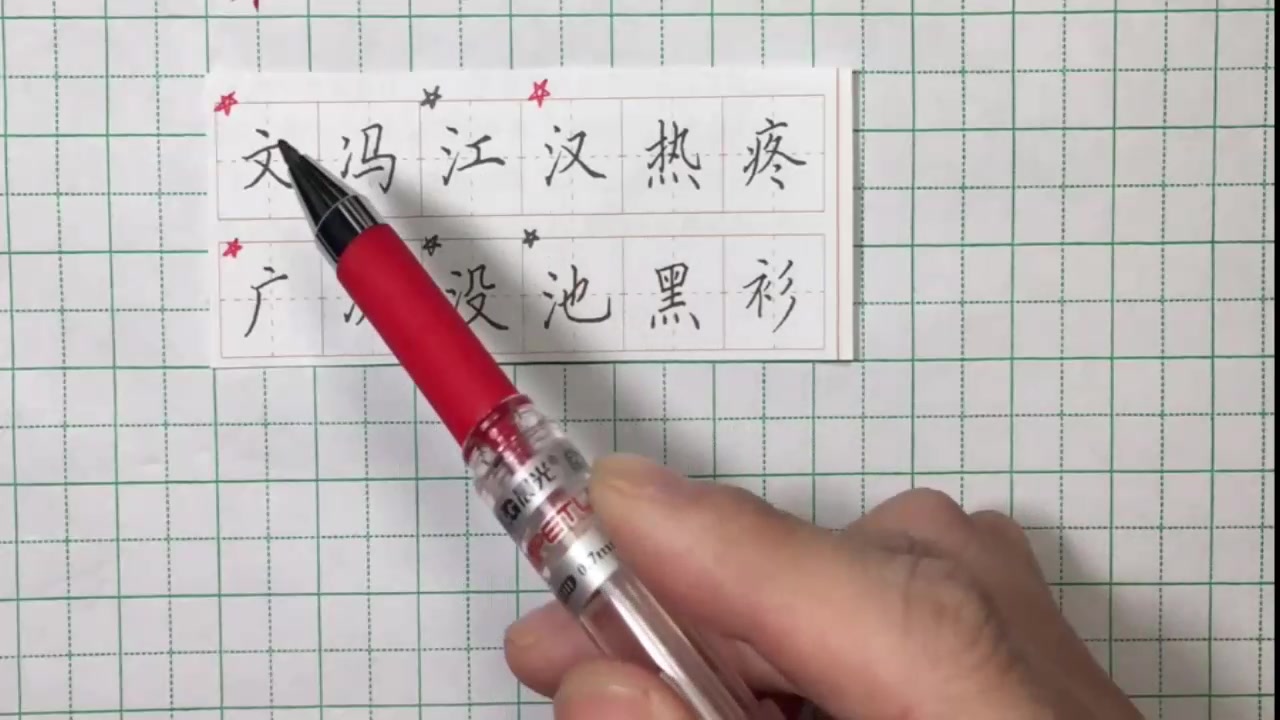 文冯江汉热疼
广没池黑衫
晨光
0.7m